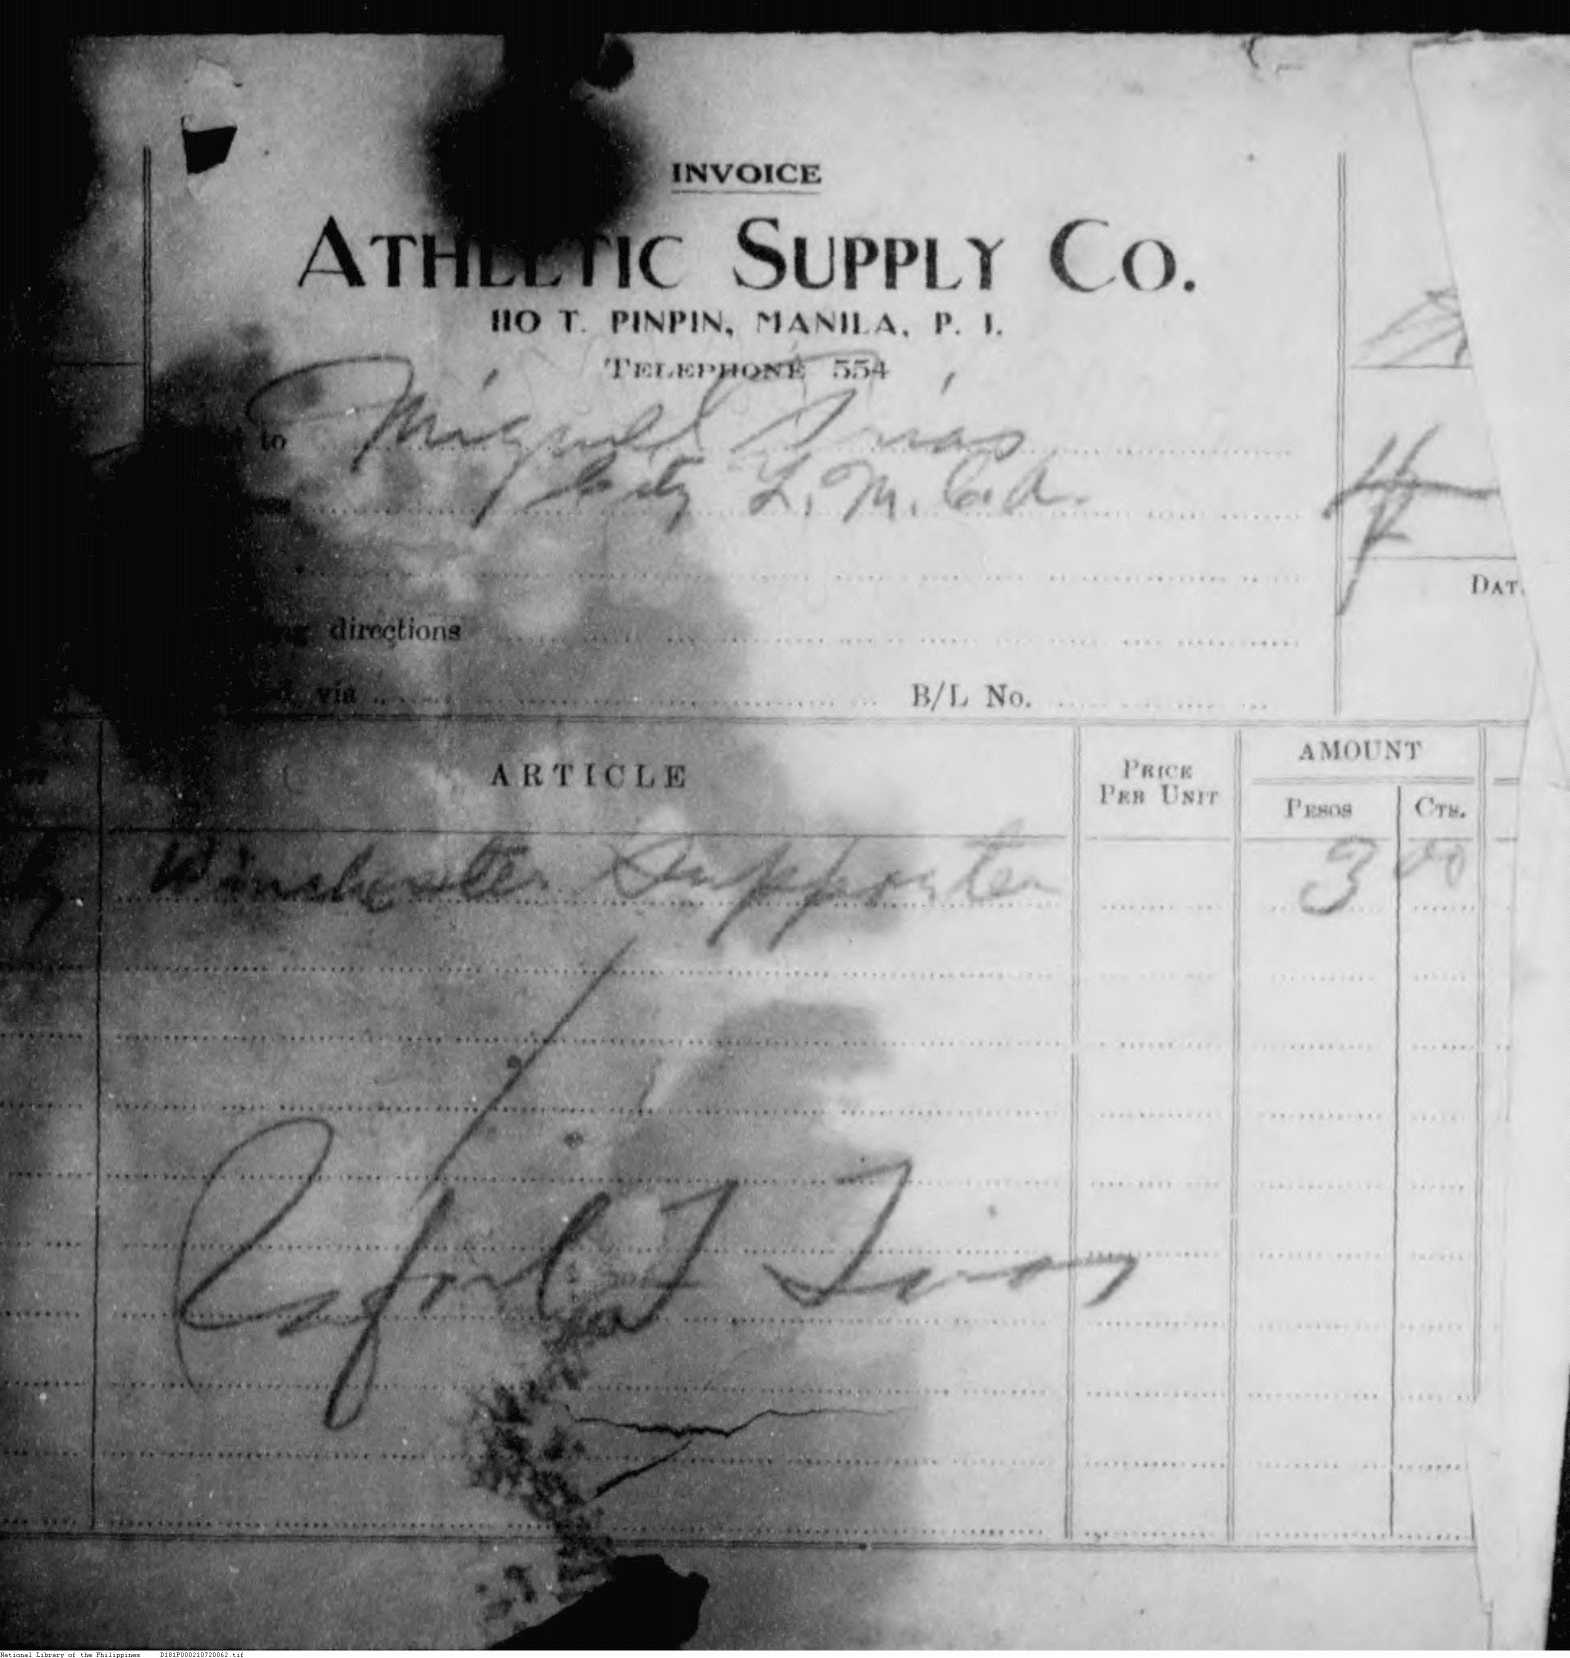 INVOICE
ATHLETIC SUPPLY CO.
110 T. PINPIN, MANILA, P. I.
TELEPHONE 554
to Miguel Trias
City Y.M.C.A.
directions
via B/L No.
DAT
ARTICLE PRICE PER UNIT AMOUNT
PESOS CTS.
Winchester Supporter 3 00
Rafael T Trias
National Library of the Philippines D181P000210720062.tif